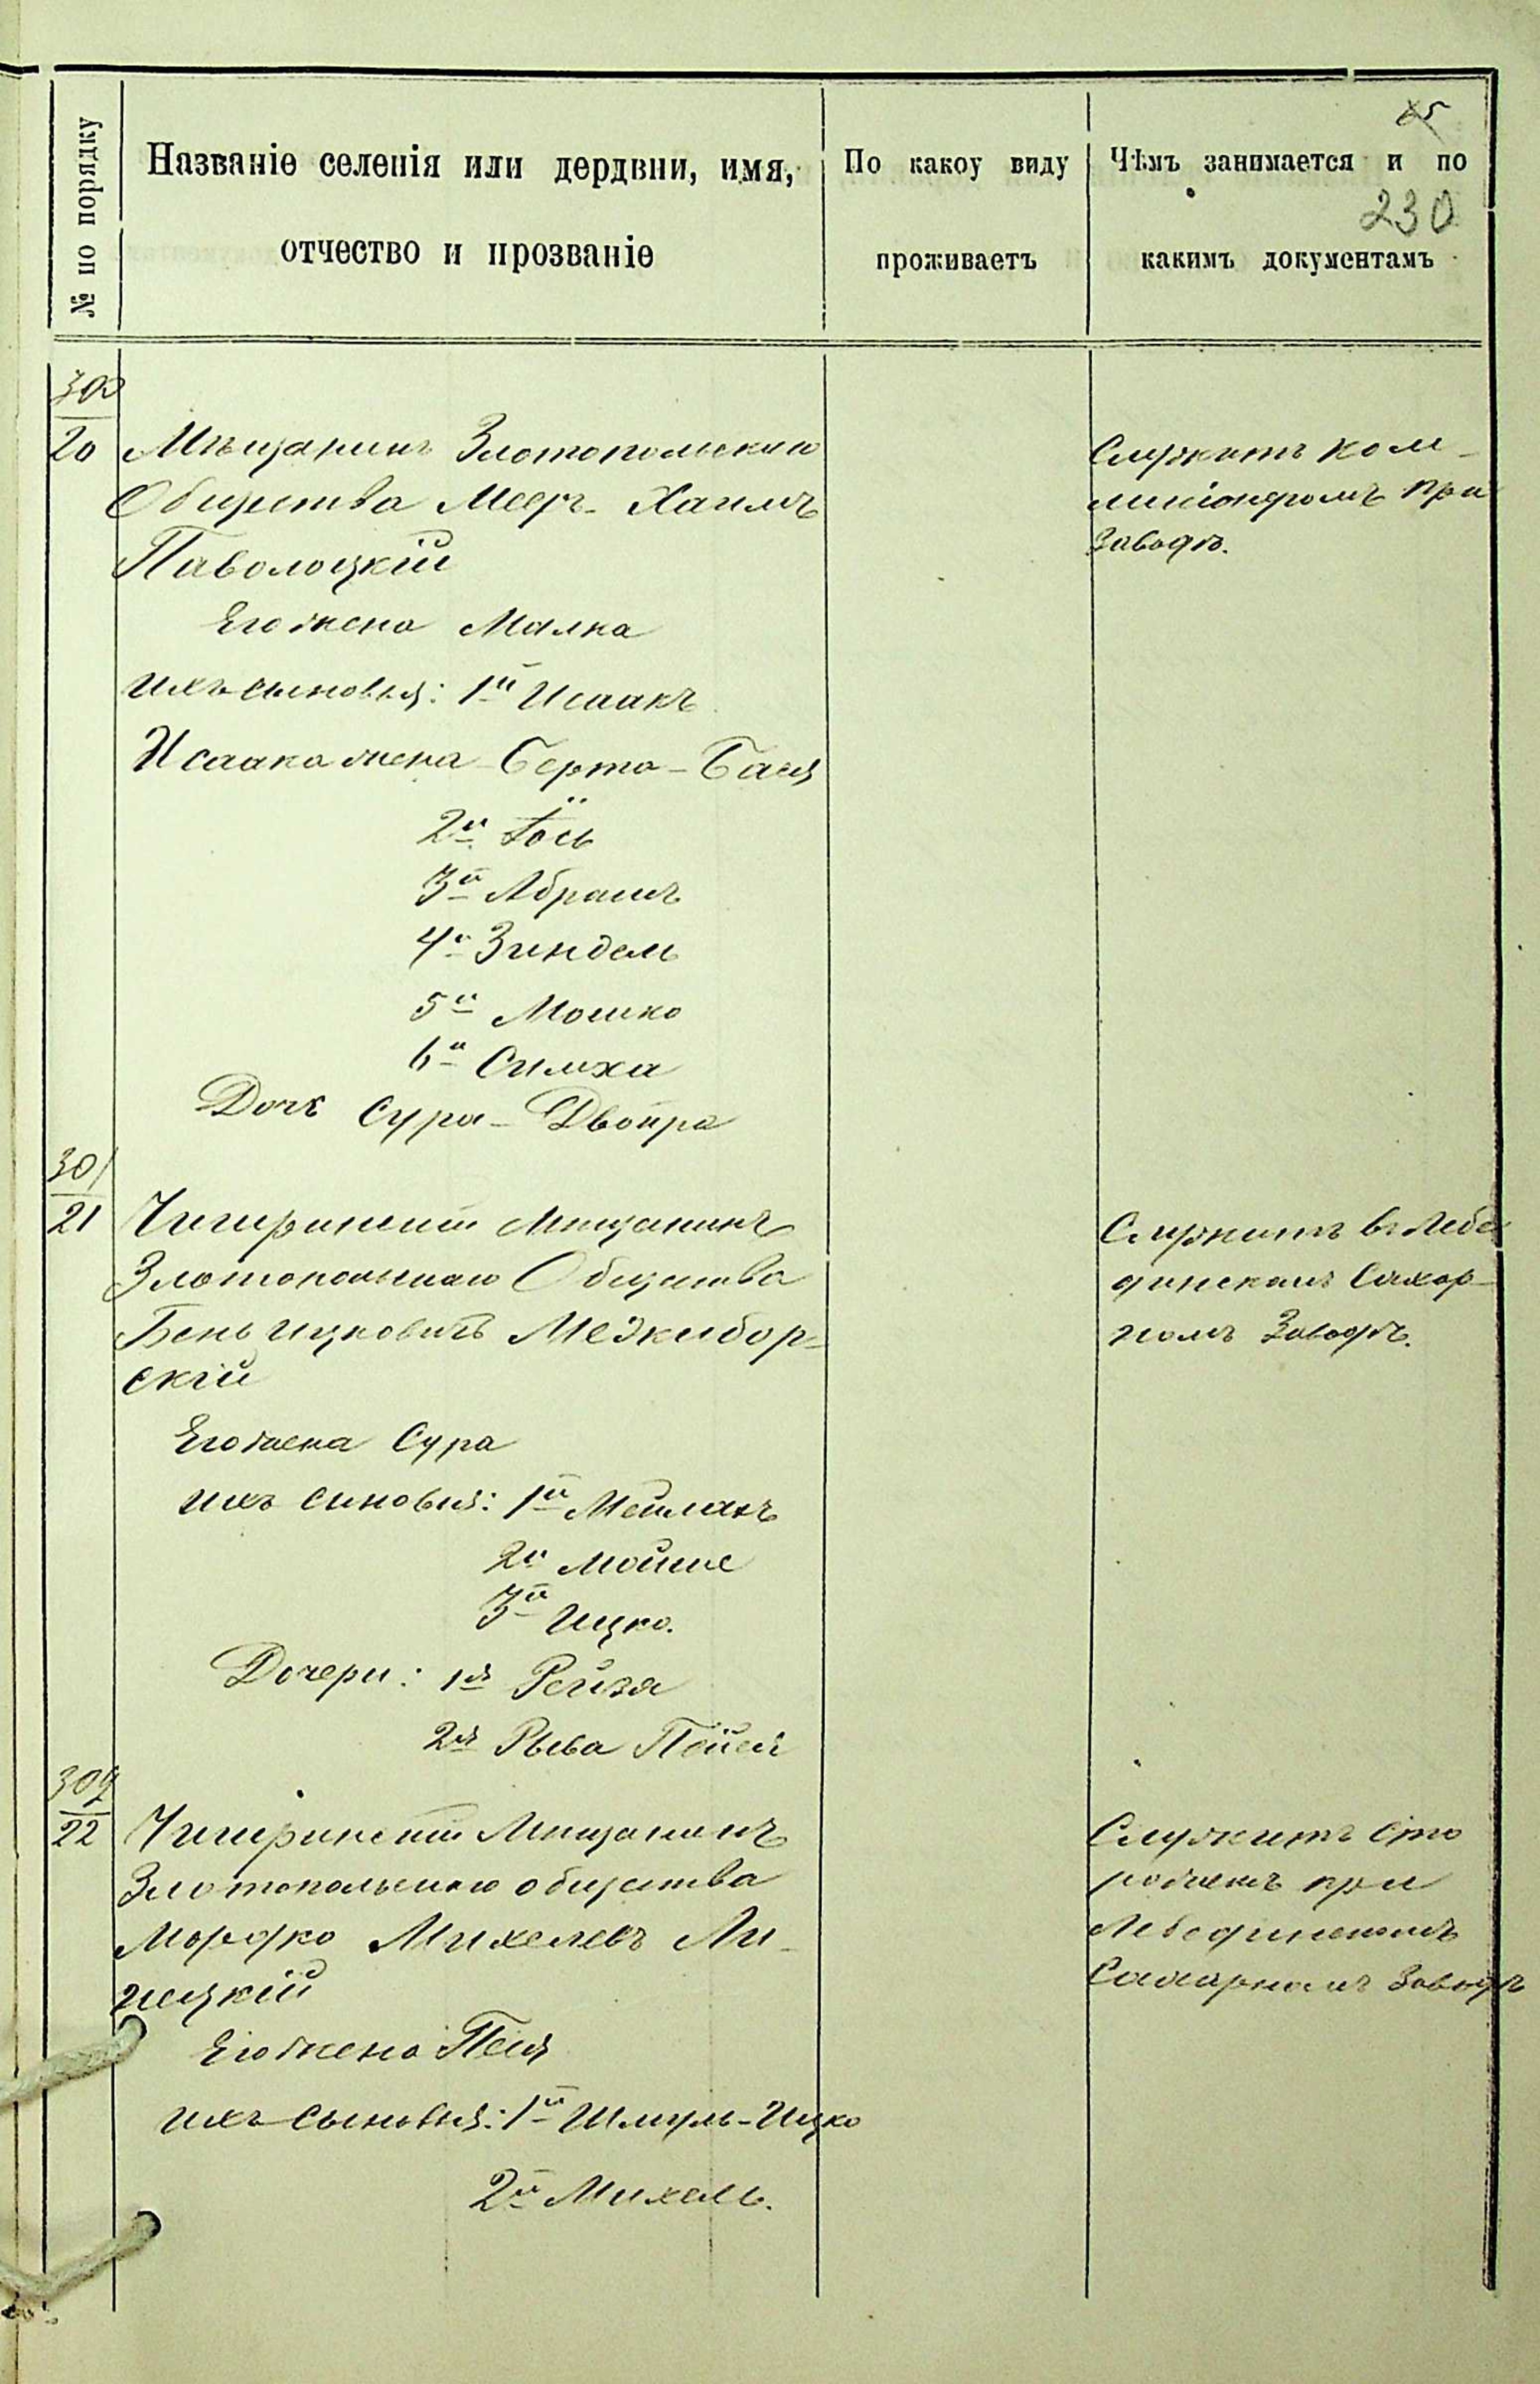 № по порядку
Названіе селенія или дердвни, имя,
отчество и прозваніе
По какоу виду
проживаетъ
Чѣмъ занимается и по
какимъ документамъ
230
300
20
Мѣщанинъ Златопольскаго
Общества Меер-Хаимъ
Паволоцкій
Его жена Малка
ихъ сыновья: 1й Исаакъ
Исаака жена Берта-Бася
2й Іось
3й Абрамъ
4й Зиндель
5й Мошко
6й Симха
Дочь Сура-Двойра
Служитъ ком-
миссіонеромъ при
Заводѣ.
301
21
Чигиринскій Мѣщанинъ
Златопольскаго Общества
Бень Ицковичъ Межибор-
скій
Его жена Сура
ихъ синовья: 1й Мейлахъ
2й Мойше
3й Ицко.
Дочери: 1я Рейзя
2я Рыва
Служитъ въ Лебе
динскомъ Сахар-
номъ Заводѣ.
302
22
Чигиринскій Мѣщанинъ
Златопольскаго общества
Мордко Михелевъ Ли-
нецкій
Его жена Песя
ихъ сыновья: 1й Шмуль-Ицко
2й Михель.
Служитъ сто
рожемъ при
Лебединскомъ
Сахарномъ Заводѣ